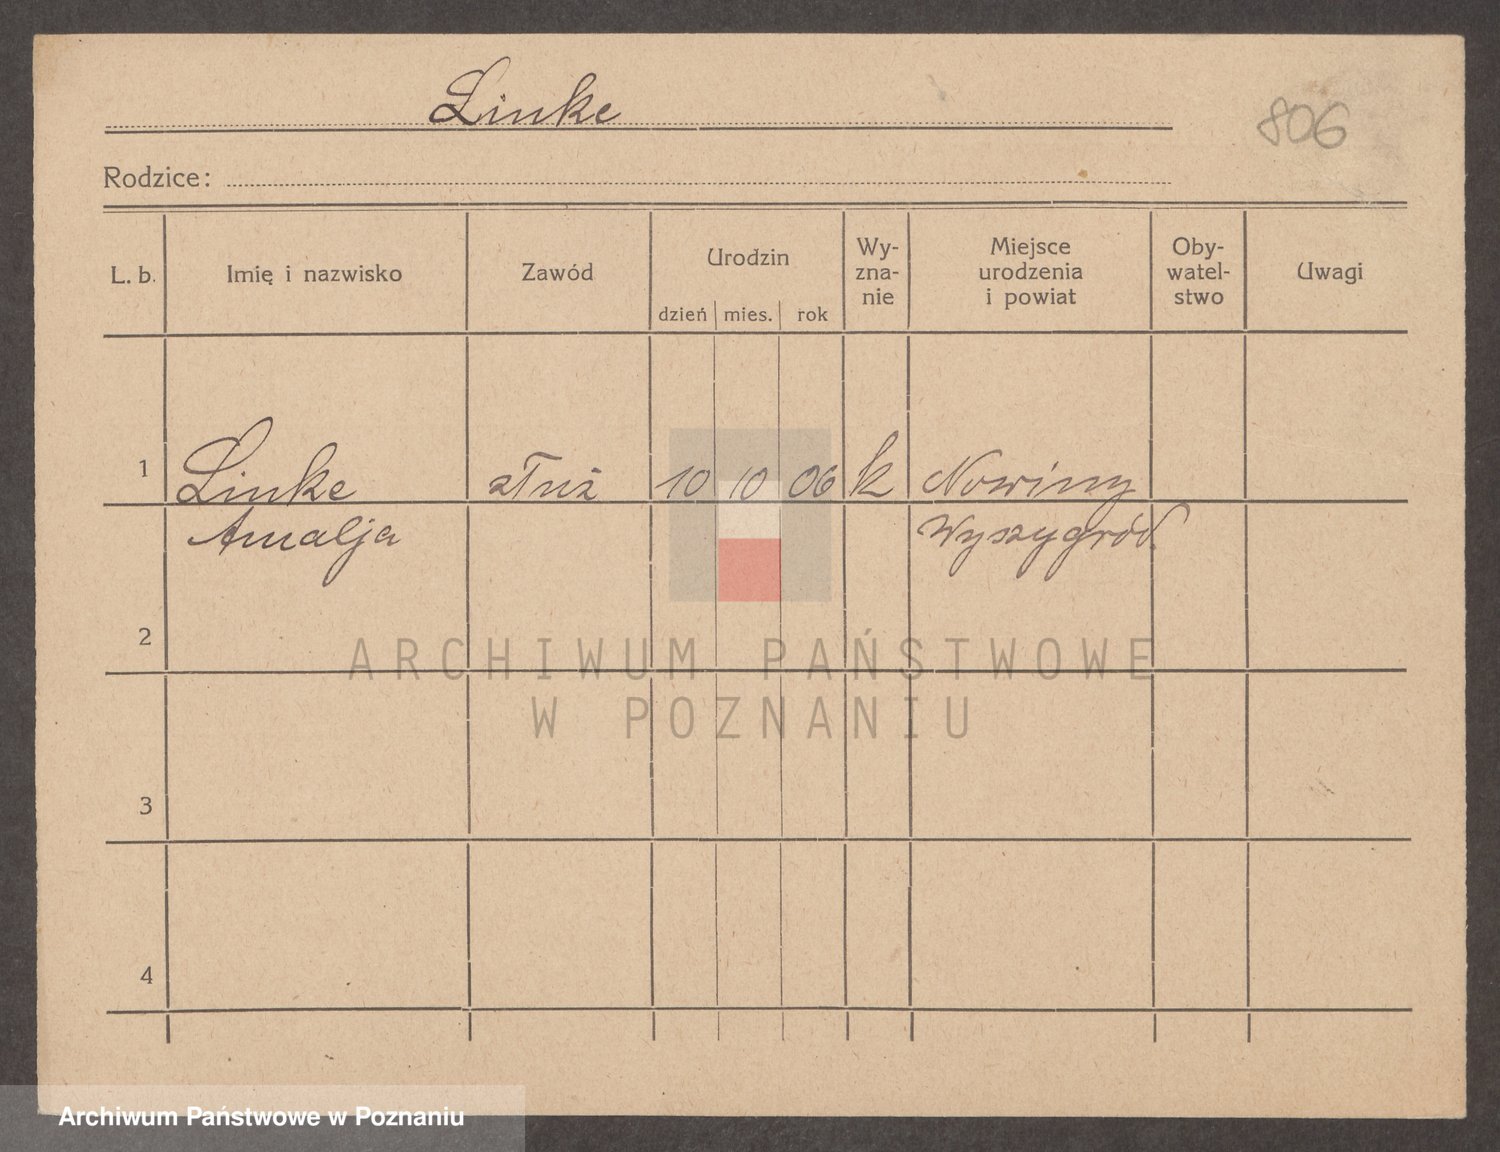 Linke
806
Rodzice:
L. b.
Imię i nazwisko
Zawód
Urodzin
dzień mies. rok
Wy-
zna-
nie
Miejsce
urodzenia
i powiat
Oby-
watel-
stwo
Uwagi
1 Linke służ 10 10 06 k Nowiny
Amalja Wyszygród.
2
3
4
ARCHIWUM PAŃSTWOWE
W POZNANIU
Archiwum Państwowe w Poznaniu